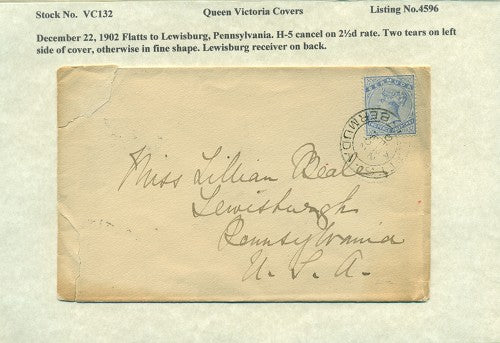 Stock No. VC132 Queen Victoria Covers Listing No.4596
December 22, 1902 Flatts to Lewisburg, Pennsylvania. H-5 cancel on 2½d rate. Two tears on left
side of cover, otherwise in fine shape. Lewisburg receiver on back.
BERMUDA
BERMUDA
Miss Lillian Beale
Lewisburgh
Pennsylvania
U. S. A.